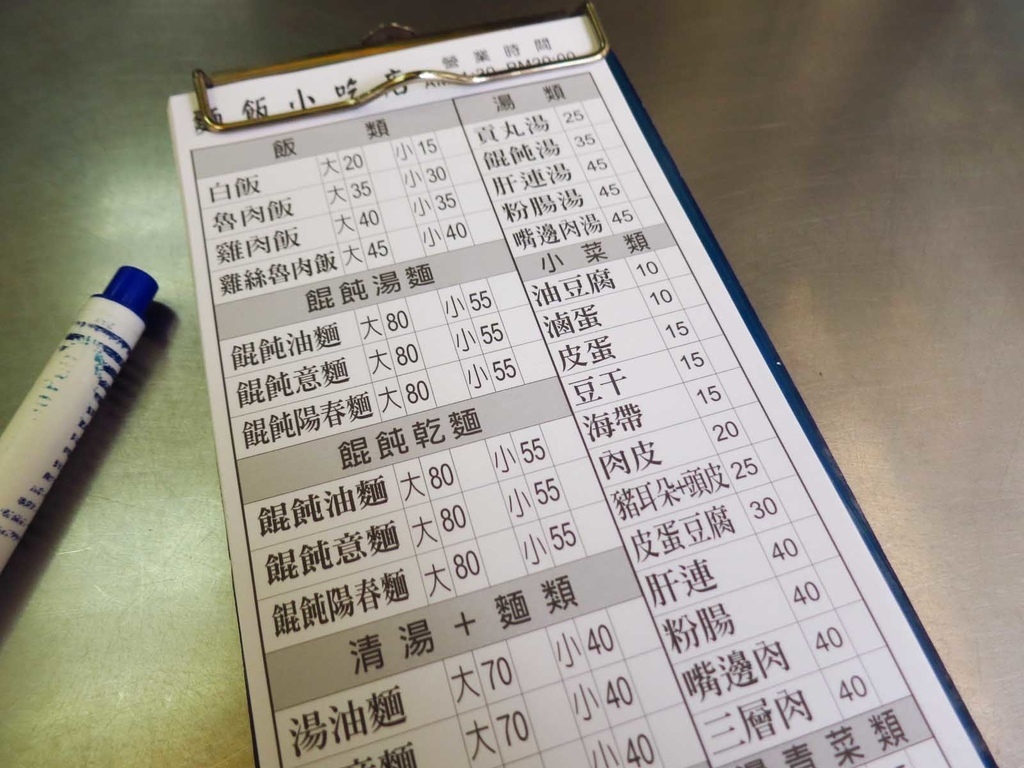 麵飯小吃店
營業時間
飯類
白飯 大20 小15
魯肉飯 大35 小30
雞肉飯 大40 小35
雞絲魯肉飯 大45 小40
餛飩湯麵
餛飩油麵 大80 小55
餛飩意麵 大80 小55
餛飩陽春麵 大80 小55
餛飩乾麵
餛飩油麵 大80 小55
餛飩意麵 大80 小55
餛飩陽春麵 大80 小55
清湯+麵類
湯油麵 大70 小40
意麵 大70 小40
小40
湯類
貢丸湯 25
餛飩湯 35
肝連湯 45
粉腸湯 45
嘴邊肉湯 45
小菜類
油豆腐 10
滷蛋 10
皮蛋 15
豆干 15
海帶 15
肉皮 20
豬耳朵+頭皮 25
皮蛋豆腐 30
肝連 40
粉腸 40
嘴邊肉 40
三層肉 40
燙青菜類